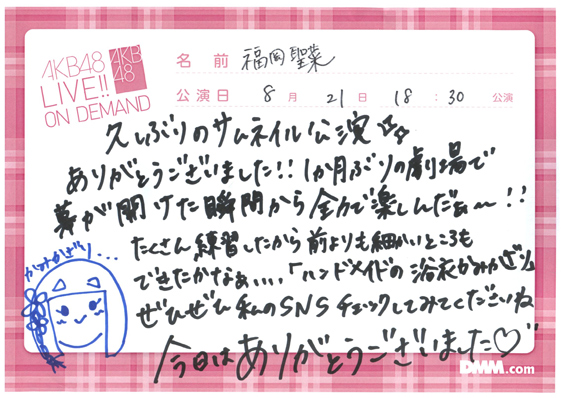 AKB48
LIVE!!
ON DEMAND
AKB
48
名前 福岡聖菜
公演日 8月21日 18:30 公演
久しぶりのサムネイル公演☆☆
ありがとうございました!!1か月ぶりの劇場で
幕が開けた瞬間から全力で楽しんだぁ〜!!
たくさん練習したから前よりも細かいところも
できたかなぁ....「ハンドメイドの浴衣かみかざり」
ぜひぜひ私のSNSチェックしてみてくださいね
今日はありがとうございました♡
かみかざり...
DMM.com